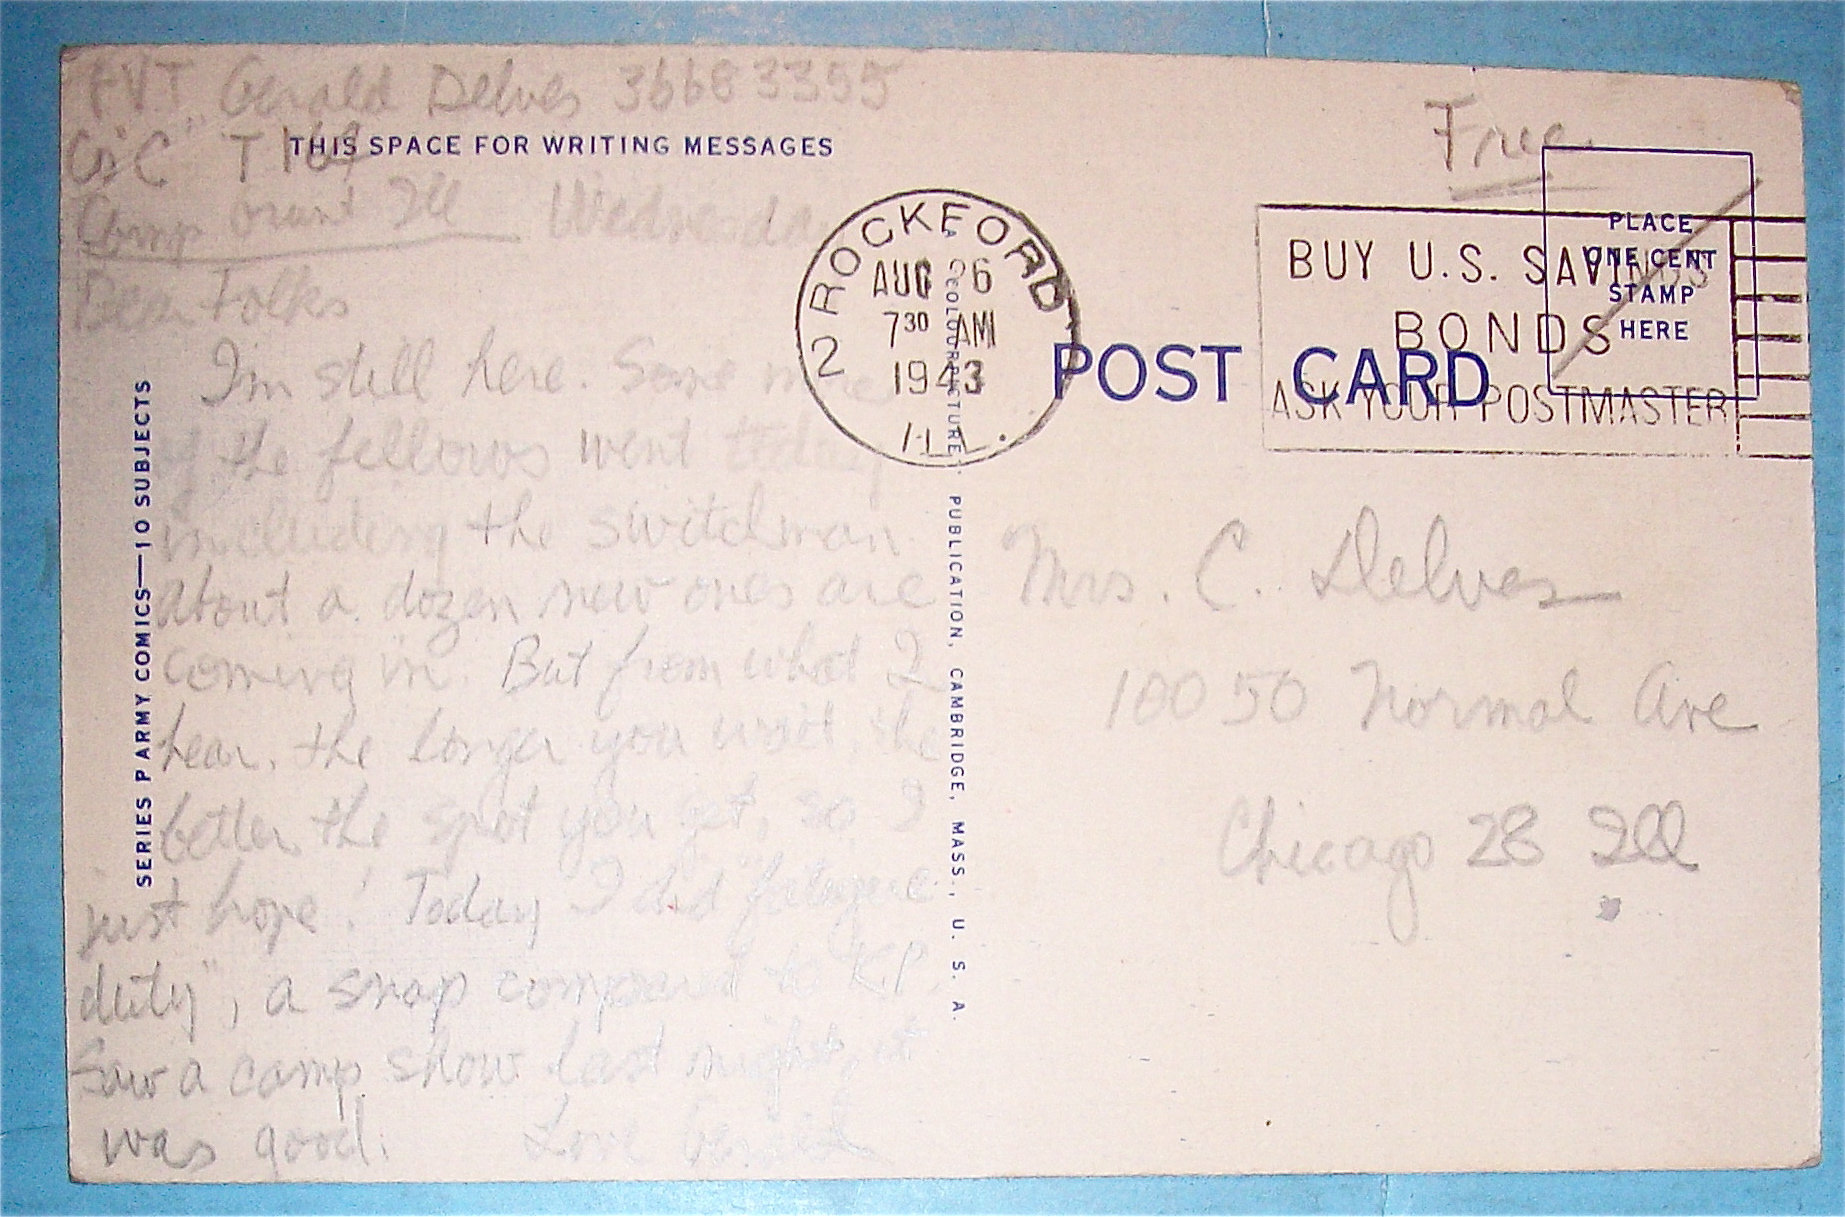 PVT Gerald Delves 36683355
Co "C" T 164
THIS SPACE FOR WRITING MESSAGES
Camp Grant Ill Wednesday
Dear Folks
I'm still here. Some more
of the fellows went today
including the switchman.
About a dozen new ones are
coming in. But from what I
hear, the longer you wait, the
better the spot you get, so I
just hope! Today I did "fatigue
duty", a snap compared to KP.
Saw a camp show last night, it
was good. Love Gerald
SERIES P ARMY COMICS—10 SUBJECTS
A "COLOURPICTURE" PUBLICATION, CAMBRIDGE, MASS., U. S. A.
2 ROCKFORD
AUG 26
7 30 AM
1943
ILL.
Free
BUY U.S. SAVINGS
BONDS
ASK YOUR POSTMASTER
PLACE
ONE CENT
STAMP
HERE
POST CARD
Mrs. C. Delves
10050 Normal Ave
Chicago 28 Ill